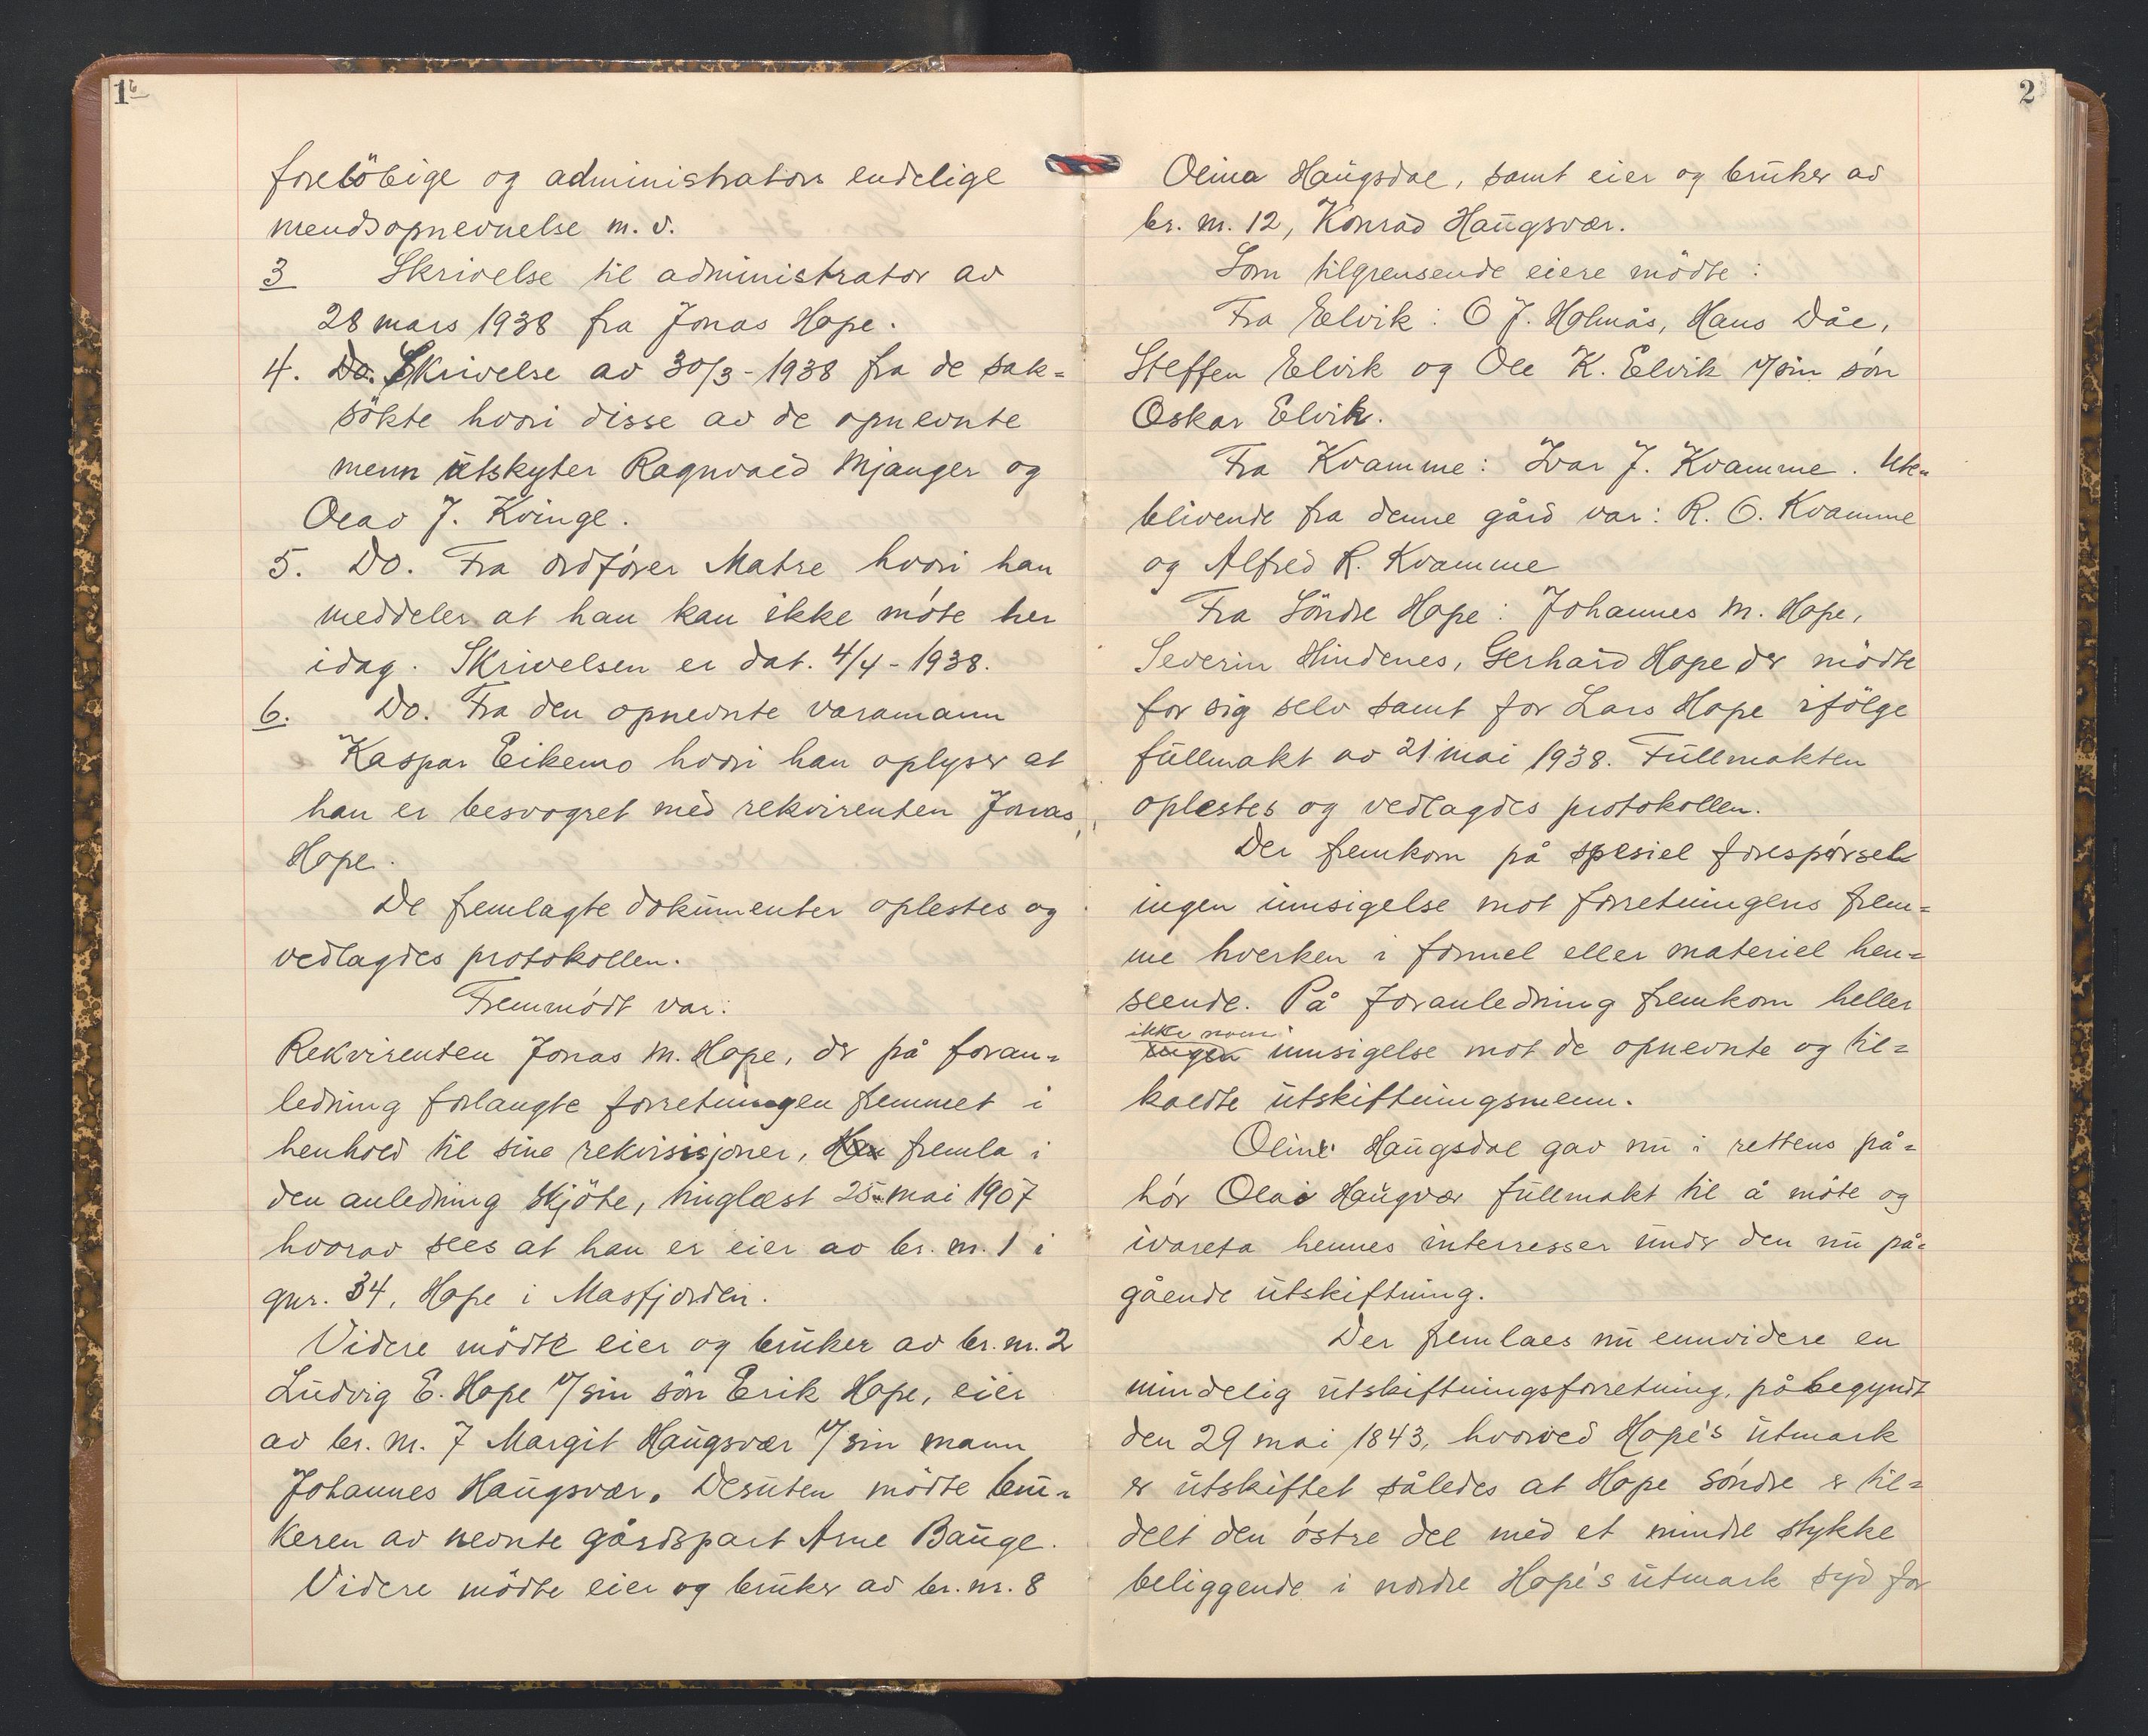 1b
foreløbige og administrators endelige
mendsopnevnelse m. v.
3 Skrivelse til administrator av
28 mars 1938 fra Jonas Hope.
4. Do. Skrivelse av 30/3-1938 fra de sak=
søkte hvori disse av de opnevnte
menn utskyter Ragnvald Mjanger og
Olav J. Kvinge.
5. Do. Fra ordfører Matre hvori han
meddeler at han kan ikke møte her
idag. Skrivelsen er dat. 4/4-1938.
6. Do. Fra den opnevnte varamann
Kaspar Eikemo hvori han oplyser at
han er besvogret med rekvirenten Jonas
Hope.
De fremlagte dokumenter oplestes og
vedlagdes protokollen.
Fremmødt var:
Rekvirenten Jonas M. Hope, der på foran=
ledning forlangte forretningen fremmet i
henhold til sine rekvisisjoner, Han fremla i
den anledning skjøte, tinglæst 25 mai 1907
hvorav sees at han er eier av br. nr. 1 i
gnr. 34, Hope i Masfjorden.
Videre mødte eier og bruker av br. nr. 2
Ludvig E. Hope v/sin søn Erik Hope, eier
av br. nr. 7 Margit Haugsvær v/sin mann
Johannes Haugsvær. Desuten mødte bru=
keren av nevnte gårdspart Arne Bauge.
Videre mødte eier og bruker av br. nr. 8
2
Olina Haugsdal, samt eier og bruker av
br. nr. 12, Konrad Haugsvær.
Som tilgrensende eiere mødte:
Fra Elvik: O J. Holmås, Hans Dåe,
Steffen Elvik og Ole K. Elvik v/sin søn
Oskar Elvik.
Fra Kvamme: Ivar J. Kvamme. Ute=
blivende fra denne gård var: R. O. Kvamme
og Alfred R. Kvamme
Fra Søndre Hope: Johannes M. Hope,
Severin Hindenes, Gerhard Hope der mødte
for sig selv samt for Lars Hope ifølge
fullmakt av 21 mai 1938. Fullmakten
oplestes og vedlagdes protokollen.
Der fremkom på spesiel forespørsel
ingen innsigelse mot forretningens frem=
me hverken i formel eller materiel hen=
seende. På foranledning fremkom heller
ikke noen
ingen innsigelse mot de opnevnte og til=
kaldte utskiftningsmenn.
Oline Haugsdal gav nu i rettens på=
hør Olai Haugvær fullmakt til å møte og
ivareta hennes interesser under den nu på=
gående utskiftning.
Der fremlaes nu ennvidere en
mindelig utskiftningsforretning, påbegyndt
den 29 mai 1843, hvorved Hope's utmark
er utskiftet således at Hope søndre er til=
delt den østre del med et mindre stykke
beliggende i nordre Hope's utmark syd for